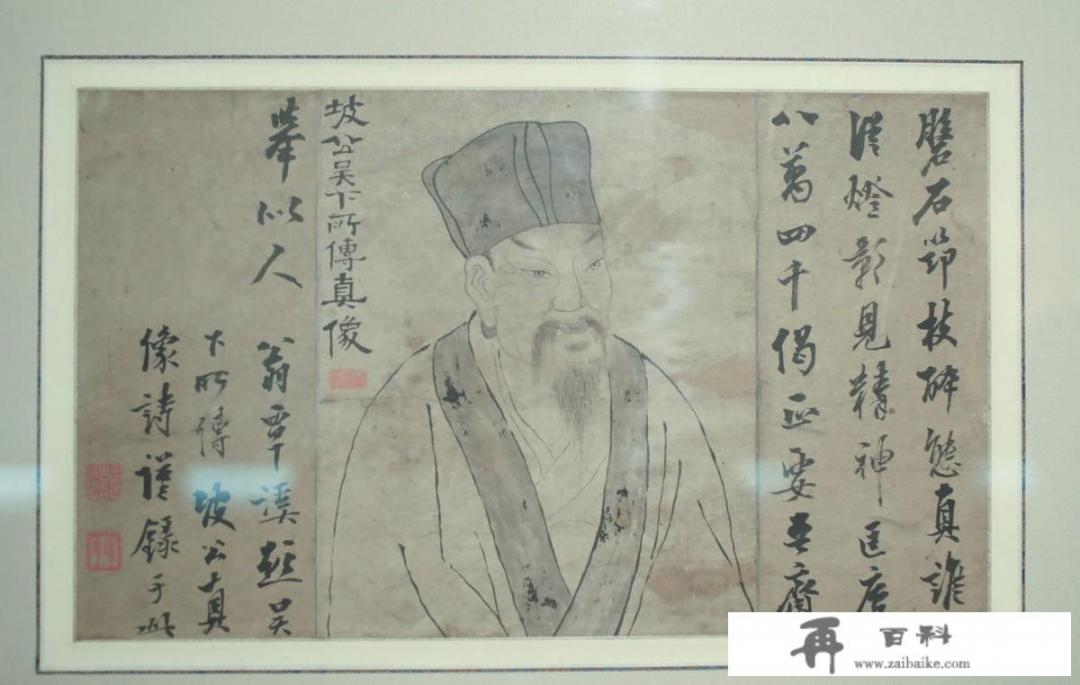 磐石筇杖醉態真誰
從燈影見精神匡廬
八萬四千偈正要吾齋
坡公吴下所傳真像
舉似人 翁覃溪題吴
下所傳坡公真
像詩謹錄于此
再 百科
www.zaibaike.com